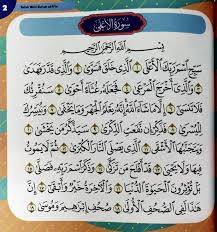 2
سُورَةُ الْأَعْلَى
بِسْمِ اللَّهِ الرَّحْمَٰنِ الرَّحِيمِ
سَبِّحِ اسْمَ رَبِّكَ الْأَعْلَى ۝ الَّذِي خَلَقَ فَسَوَّىٰ ۝ وَالَّذِي قَدَّرَ فَهَدَىٰ
۝ وَالَّذِي أَخْرَجَ الْمَرْعَىٰ ۝ فَجَعَلَهُ غُثَاءً أَحْوَىٰ ۝ سَنُقْرِئُكَ
فَلَا تَنْسَىٰ ۝ إِلَّا مَا شَاءَ اللَّهُ إِنَّهُ يَعْلَمُ الْجَهْرَ وَمَا يَخْفَىٰ ۝ وَنُيَسِّرُكَ
لِلْيُسْرَىٰ ۝ فَذَكِّرْ إِنْ نَفَعَتِ الذِّكْرَىٰ ۝ سَيَذَّكَّرُ مَنْ يَخْشَىٰ ۝
وَيَتَجَنَّبُهَا الْأَشْقَى ۝ الَّذِي يَصْلَى النَّارَ الْكُبْرَىٰ ۝ ثُمَّ لَا يَمُوتُ
فِيهَا وَلَا يَحْيَىٰ ۝ قَدْ أَفْلَحَ مَنْ تَزَكَّىٰ ۝ وَذَكَرَ اسْمَ رَبِّهِ فَصَلَّىٰ ۝
بَلْ تُؤْثِرُونَ الْحَيَاةَ الدُّنْيَا ۝ وَالْآخِرَةُ خَيْرٌ وَأَبْقَىٰ ۝ إِنَّ
هَٰذَا لَفِي الصُّحُفِ الْأُولَىٰ ۝ صُحُفِ إِبْرَاهِيمَ وَمُوسَىٰ ۝